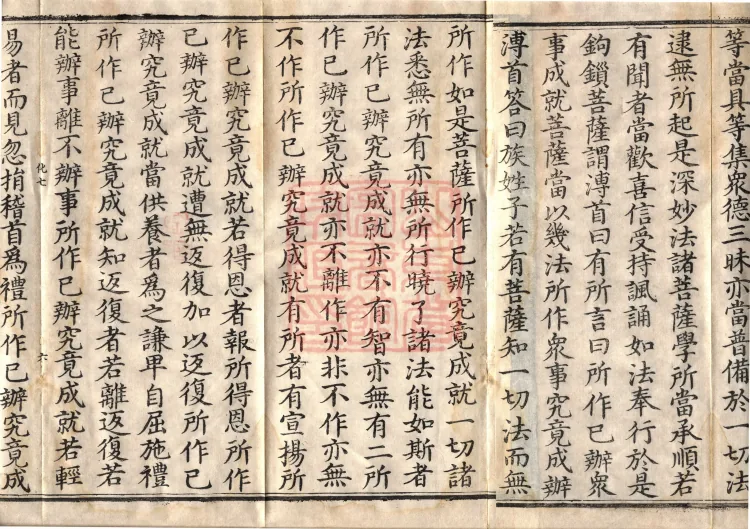 等當具等集衆德三昧亦當普備於一切法
逮無所起是深妙法諸菩薩學所當承順若
有聞者當歡喜信受持諷誦如法奉行於是
鉤鎖菩薩謂溥首曰有所言曰所作已辦衆
事成就菩薩當以幾法所作衆事究竟成辦
溥首答曰族姓子若有菩薩知一切法而無
所作如是菩薩所作已辦究竟成就一切諸
法悉無所有亦無所行曉了諸法能如斯者
所作已辦究竟成就亦不有智亦無有二所
作已辦究竟成就亦不離作亦非不作亦無
不作所作已辦究竟成就有所者有宣揚所
作已辦究竟成就若得恩者報所得恩所作
已辦究竟成就遭無返復加以返復所作已
辦究竟成就當供養者為之謙卑自屈施禮
所作已辦究竟成就知返復者若離返復若
能辦事離不辦事所作已辦究竟成就若輕
化七 六
易者而見忽捐稽首為禮所作已辦究竟成